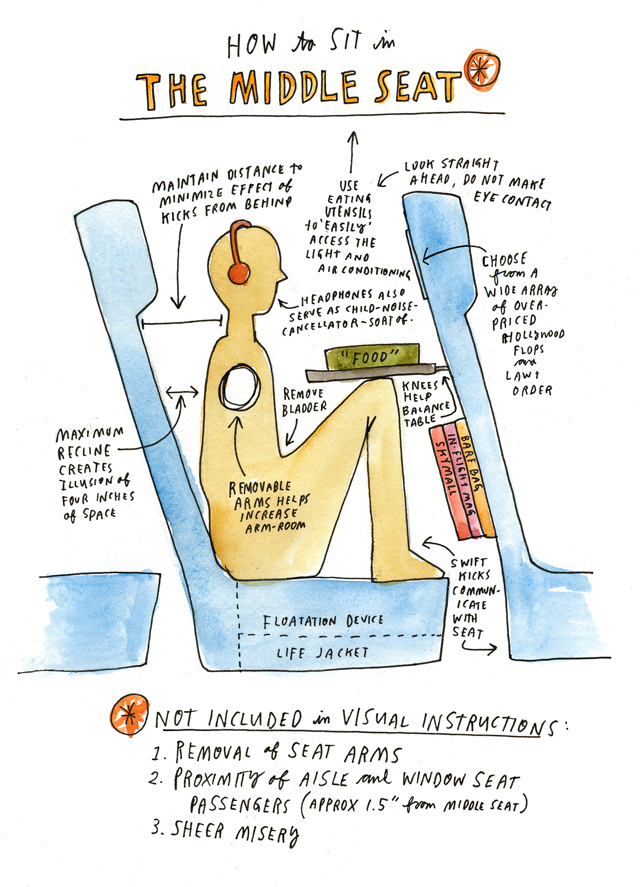 HOW to SIT in
THE MIDDLE SEAT
MAINTAIN DISTANCE to
MINIMIZE EFFECT of
KICKS FROM BEHIND
USE
EATING
UTENSILS
to 'EASILY'
ACCESS THE
LIGHT AND
AIR CONDITIONING
LOOK STRAIGHT
AHEAD, DO NOT MAKE
EYE CONTACT
HEADPHONES ALSO
SERVE AS CHILD-NOISE-
CANCELLATOR-SORT of.
CHOOSE
from A
WIDE ARRAY
of OVER-
PRICED
HOLLYWOOD
FLOPS
and
LAW &
ORDER
"FOOD"
REMOVE
BLADDER
KNEES
HELP
BALANCE
TABLE
MAXIMUM
RECLINE
CREATES
ILLUSION of
FOUR INCHES
of SPACE
REMOVABLE
ARMS HELPS
INCREASE
ARM-ROOM
SKYMALL
IN-FLIGHT MAG
BARF BAG
SWIFT
KICKS
COMMUN-
ICATE
WITH
SEAT
FLOATATION DEVICE
LIFE JACKET
NOT INCLUDED in VISUAL INSTRUCTIONS:
1. REMOVAL of SEAT ARMS
2. PROXIMITY of AISLE and WINDOW SEAT
PASSENGERS (APPROX 1.5" from MIDDLE SEAT)
3. SHEER MISERY